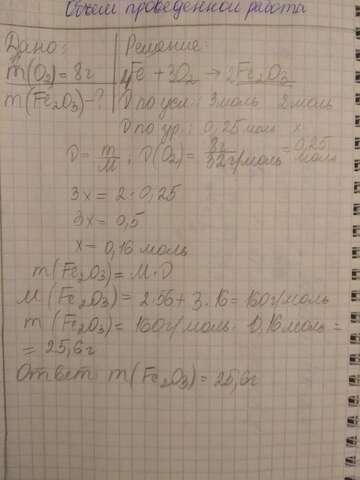 Объём проведенной работы
Дано: Решение:
m(O₂)=8г 4Fe + 3O₂ → 2Fe₂O₃
m(Fe₂O₃)-? ν по усл: 3моль 2моль
ν по ур.: 0,25 моль x
ν = m/M, ν(O₂) = 8г/32г/моль = 0,25 моль
3x = 2 · 0,25
3x = 0,5
x = 0,16 моль
m(Fe₂O₃) = M · ν
M(Fe₂O₃) = 2·56 + 3·16 = 160г/моль
m(Fe₂O₃) = 160г/моль · 0,16моль =
= 25,6г
Ответ m(Fe₂O₃) = 25,6г